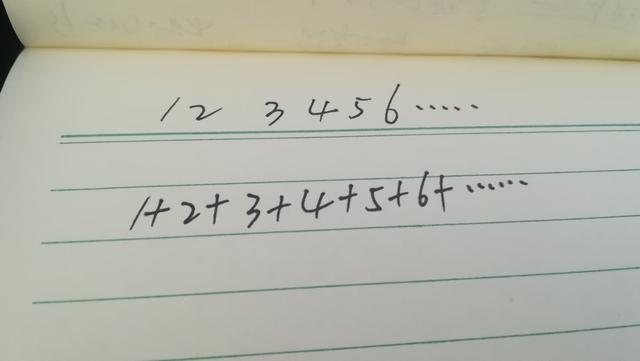 1 2 3 4 5 6 ······
1+2+3+4+5+6+ ······